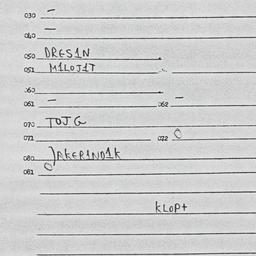 030 –
040 –
050 DRES1N
051 M1LOJ1T
060
061 – 062 –
070 TOJG
071 072 C
080 JAKER1ND1K
081
KLOPT